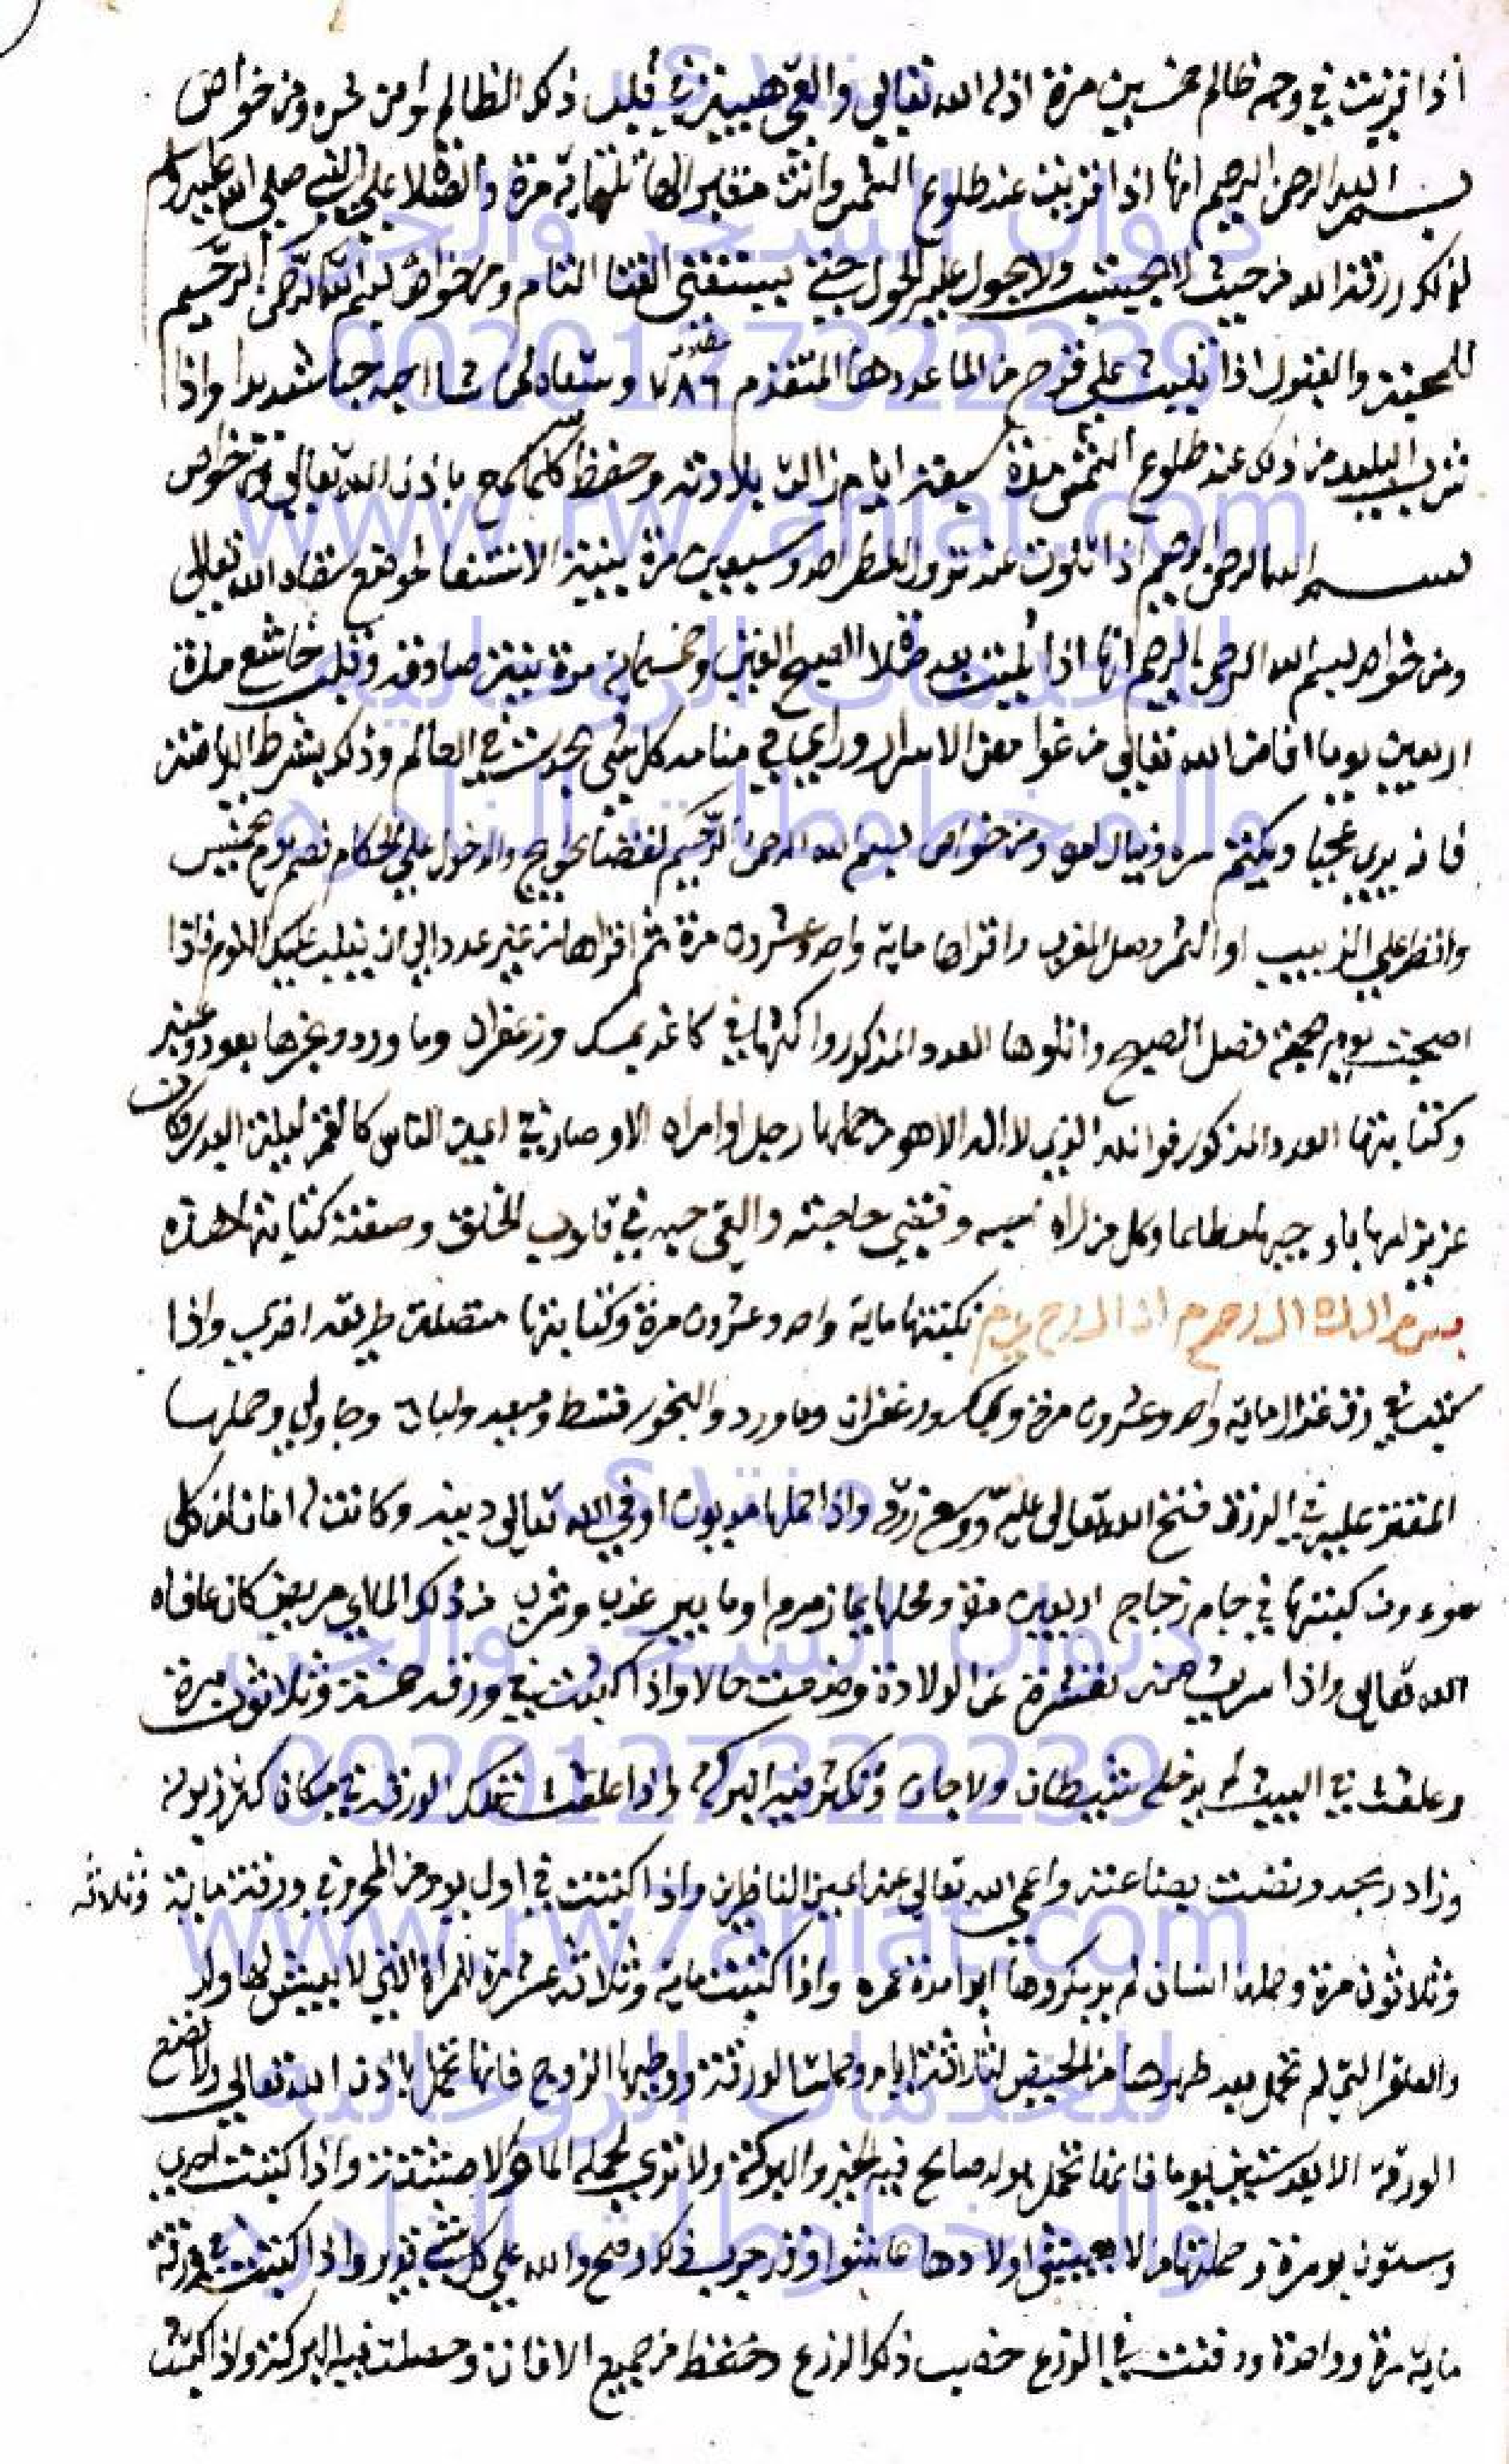 اذا قرئت في وجه ظالم خمسين مرة اذله الله تعالى والقى هيبته في قلب ذلك الظالم وامن شره ومن خواص
بسم الله الرحمن الرحيم انها اذا قريت عند طلوع الشمس وانت مقابلها ثلثماية مرة والصلاة على النبي صلى الله عليه وسلم
كذلك رزقه الله من حيث لا يحتسب ولا يحول عليه الحول حتى يستغنى الغنا التام ومن خواص بسم الله الرحمن الرحيم
للمحبة والقبول اذا تليت على قدح من الما عددها المتقدم ٧٨٦ وسقاه لمن شا احبه حبا شديدا واذا
شرب البليد من ذلك عند طلوع الشمس مدة سبعة ايام زالت بلادته وحفظ كلما سمع باذن الله تعالى ومن خواص
بسم الله الرحمن الرحيم اذا تلوت عند نزول المطر احد وسبعين مرة بنية الاستسقا لموضع سقاه الله تعالى
ومن خواص بسم الله الرحمن الرحيم انها اذا تليت بعد صلاة الصبح الفين وخمسماية مرة بنية صادقة وقلب خاشع مدة
اربعين يوما افاض الله تعالى من غوامض الاسرار وراى في منامه كل شي يحدث في العالم وذلك بشرط الرياضة
فانه يرى عجبا ويكتم سره فينال امره ومن خواص بسم الله الرحمن الرحيم لقضا الحوايج والدخول على الحكام تصوم يوم الخميس
وافطر على الزبيب او التمر وصل المغرب واقراها ماية واحد وعشرون مرة ثم اقراها من غير عدد الى ان يغلب عليك النوم فاذا
اصبحت يوم الجمعة فصل الصبح واتلوها العدد المذكور واكتبها في كاغد بمسك وزعفران وما ورد وبخرها بعود وعنبر
وكتابتها العدد المذكور فوالله الذي لا اله الا هو ما حملها رجل او امراه الا وصار في اعين الناس كالقمر ليلة البدر وكان
عزيزا مهابا وجيها مطاعا وكل من راه احبه وقضى حاجته والقى حبه في قلوب الخلق وصفة كتابتها هذه
ب س م ا ل ل ه ا ل ر ح م ا ن ا ل ر ح ي م تكتبها ماية واحد وعشرون مرة وكتابتها متصلة طريقه اخرى واذا
كتبت في رق غزال ماية واحد وعشرون مرة وبمسك وزعفران وما ورد والبخور قسط وميعه ولبان وجاولي وحملها
المقتر عليه في الرزق فتح الله تعالى عليه ووسع رزقه واذا حملها مديون اوفى الله تعالى دينه وكانت له امانا من كل
سوء ومن كتبتها في جام زجاج اربعين مرة ومحاها بما زمزم او ما بير عذب وشرب من ذلك الما اي مريض كان عافاه
الله تعالى واذا شربت منه متعسرة عن الولادة وضعت حالا واذا كتبت في ورقه خمسة وثلاثون مرة
وعلقت في البيت لم يدخله شيطان ولا جان وتكثر فيه البركة واذا علقت تلك الورقه في دكان كثر زبونه
وزاد ربحه ونفقت بضاعته واعمى الله تعالى عنه اعين الناظرين واذا كتبت في اول يوم من المحرم في ورقة ماية وثلاثه
وثلاثون مرة وحملها انسان لم ير مكروها ابدا مدة عمره واذا كتبت ماية وثلاثة عشر مرة للمراة التي لا يعيش لها ولد
والعاقر التي لم تحمل بعد طهرها من الحيض ثلاثة ايام وحملت الورقة ووطيها الزوج فانها تحمل باذن الله تعالى ولا تضع
الورقة الا بعد ستين يوما فانها تحمل بولد صالح فيه الخير والبركة ولا ترى لحمله الما ولا مشقة واذا كتبت احدى
وستون يو مرة وحملتها من لا يعيش اولادها عاشوا وقد جرب ذلك وصح والله على كل شي قدير واذا كتبت في ورقة
ماية مرة وواحدة ودفنت في الزرع خصب ذلك الزرع وحفظ من جميع الافات وحصلت فيه البركة واذا كتبت